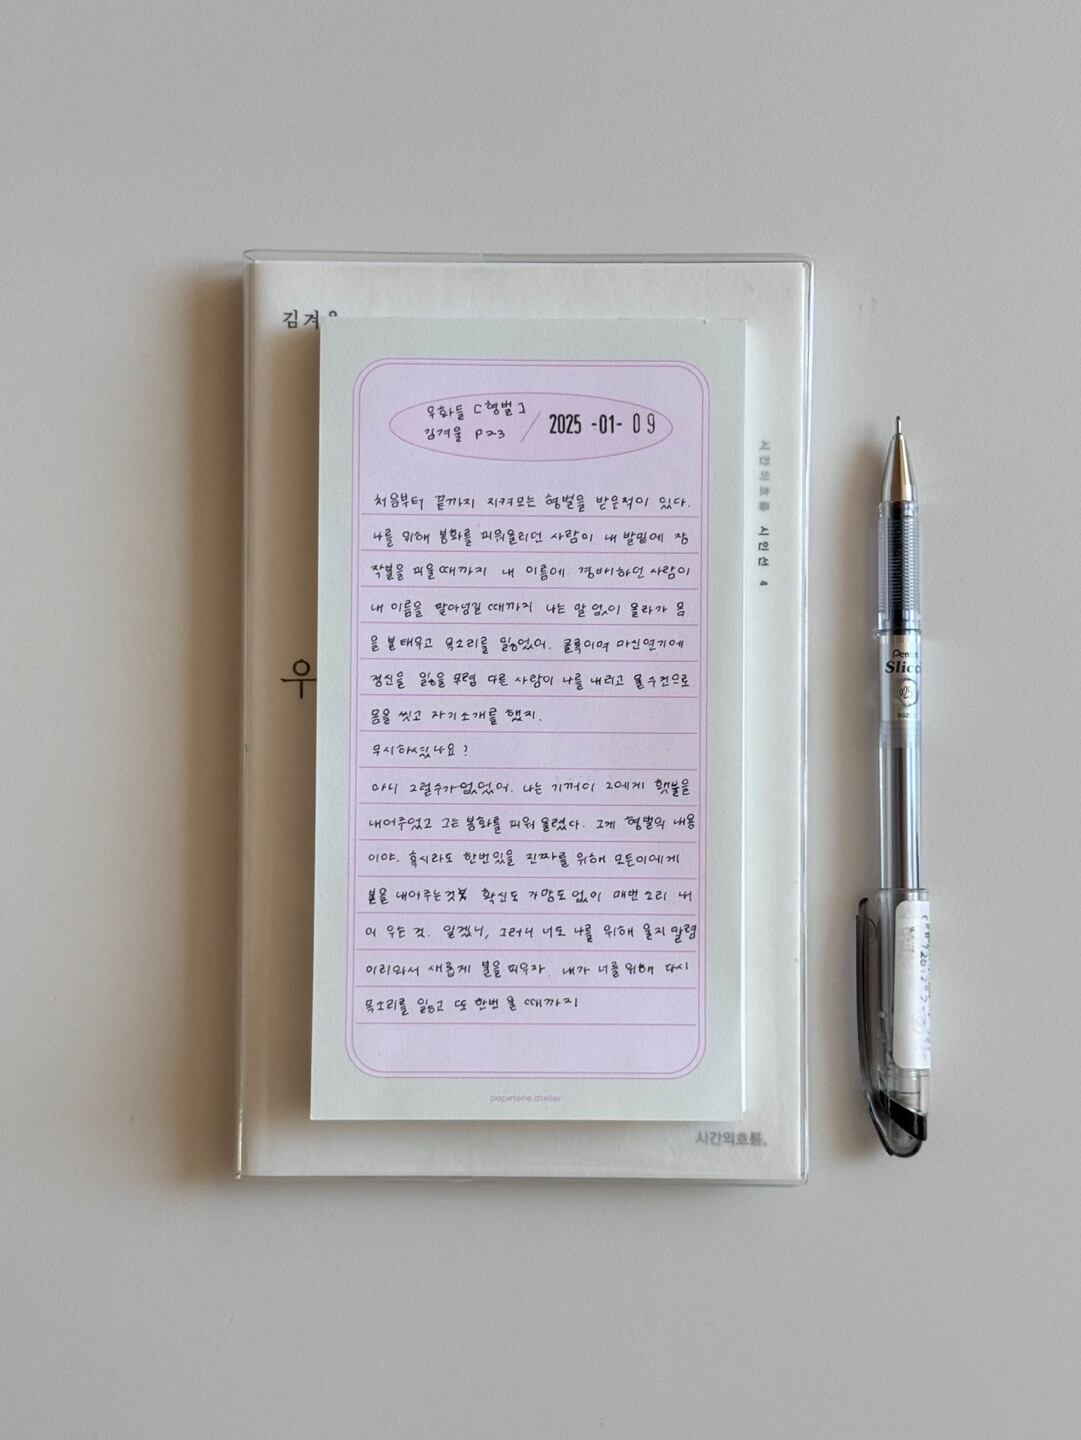 김겨울
우화들 [형벌]
김겨울 P23
2025 -01- 09
처음부터 끝까지 지켜보는 형벌을 받은적이 있다.
나를 위해 봉화를 피워올리던 사람이 내 발밑에 장
작불을 피울때까지 내 이름에 경배하던 사람이
내 이름을 팔아넘길 때까지 나는 말 없이 올라가 몸
을 불태우고 목소리를 잃었어. 굴뚝이며 마신연기에
정신을 잃을 무렵 다른 사람이 나를 내리고 물수건으로
몸을 씻고 자기소개를 했지.
무시하셨나요?
아니 그럴수가없었어. 나는 기꺼이 그에게 횃불을
내어주었고 그는 봉화를 피워 올렸다. 그게 형벌의 내용
이야. 혹시라도 한번있을 진짜를 위해 모든이에게
불을 내어주는것 확신도 가망도 없이 매번 소리 내
어 우는 것. 알겠니, 그러니 너도 나를 위해 울지 말렴
이리와서 새롭게 불을 피우자. 내가 너를 위해 다시
목소리를 잃고 또 한번 울 때까지
papeterie.atelier
우
시간의흐름 시인선 4
시간의흐름.
Pentel
Slicci